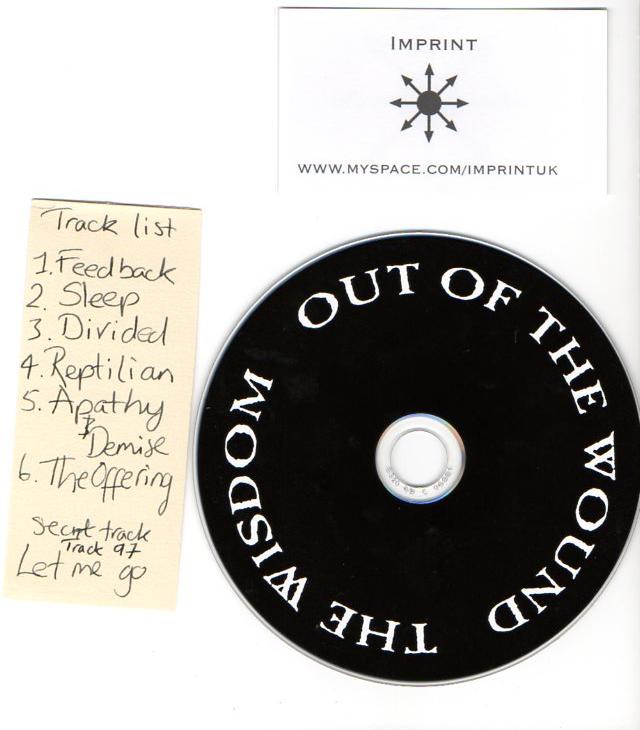 IMPRINT
WWW.MYSPACE.COM/IMPRINTUK
Track list
1. Feedback
2. Sleep
3. Divided
4. Reptilian
5. Apathy
& Demise
6. The Offering
Secret track
Track 97
Let me go
OUT OF THE WOUND THE WISDOM